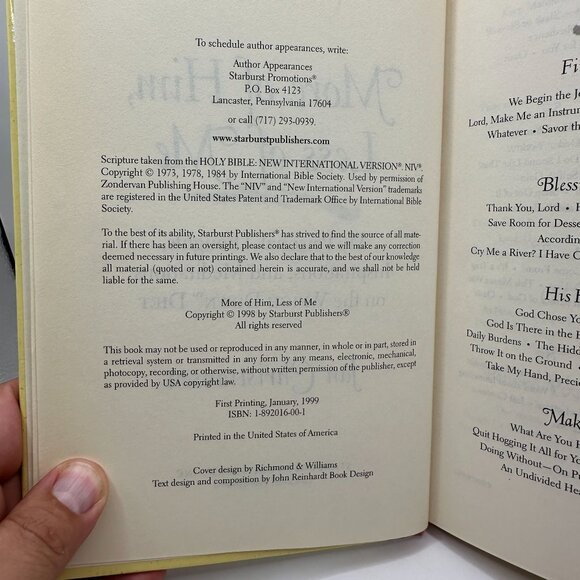 To schedule author appearances, write:
Author Appearances
Starburst Promotions®
P.O. Box 4123
Lancaster, Pennsylvania 17604
or call (717) 293-0939.
www.starburstpublishers.com
Scripture taken from the HOLY BIBLE: NEW INTERNATIONAL VERSION®. NIV®.
Copyright © 1973, 1978, 1984 by International Bible Society. Used by permission of
Zondervan Publishing House. The "NIV" and "New International Version" trademarks
are registered in the United States Patent and Trademark Office by International Bible
Society.
To the best of its ability, Starburst Publishers® has strived to find the source of all mate-
rial. If there has been an oversight, please contact us and we will make any correction
deemed necessary in future printings. We also declare that to the best of our knowledge
all material (quoted or not) contained herein is accurate, and we shall not be held
liable for the same.
More of Him, Less of Me
Copyright © 1998 by Starburst Publishers®
All rights reserved
This book may not be used or reproduced in any manner, in whole or in part, stored in
a retrieval system or transmitted in any form by any means, electronic, mechanical,
photocopy, recording, or otherwise, without written permission of the publisher, except
as provided by USA copyright law.
First Printing, January, 1999
ISBN: 1-892016-00-1
Printed in the United States of America
Cover design by Richmond & Williams
Text design and composition by John Reinhardt Book Design
We Begin the
Lord, Make Me an
Whatever • Savor
Thank You, Lord •
Save Room for
Cry Me a River? I Have
His
God Chose
God Is There in the
Daily Burdens • The
Throw It on the Ground •
Take My Hand,
What Are You
Quit Hogging It All for
Doing Without—On
An Undivided